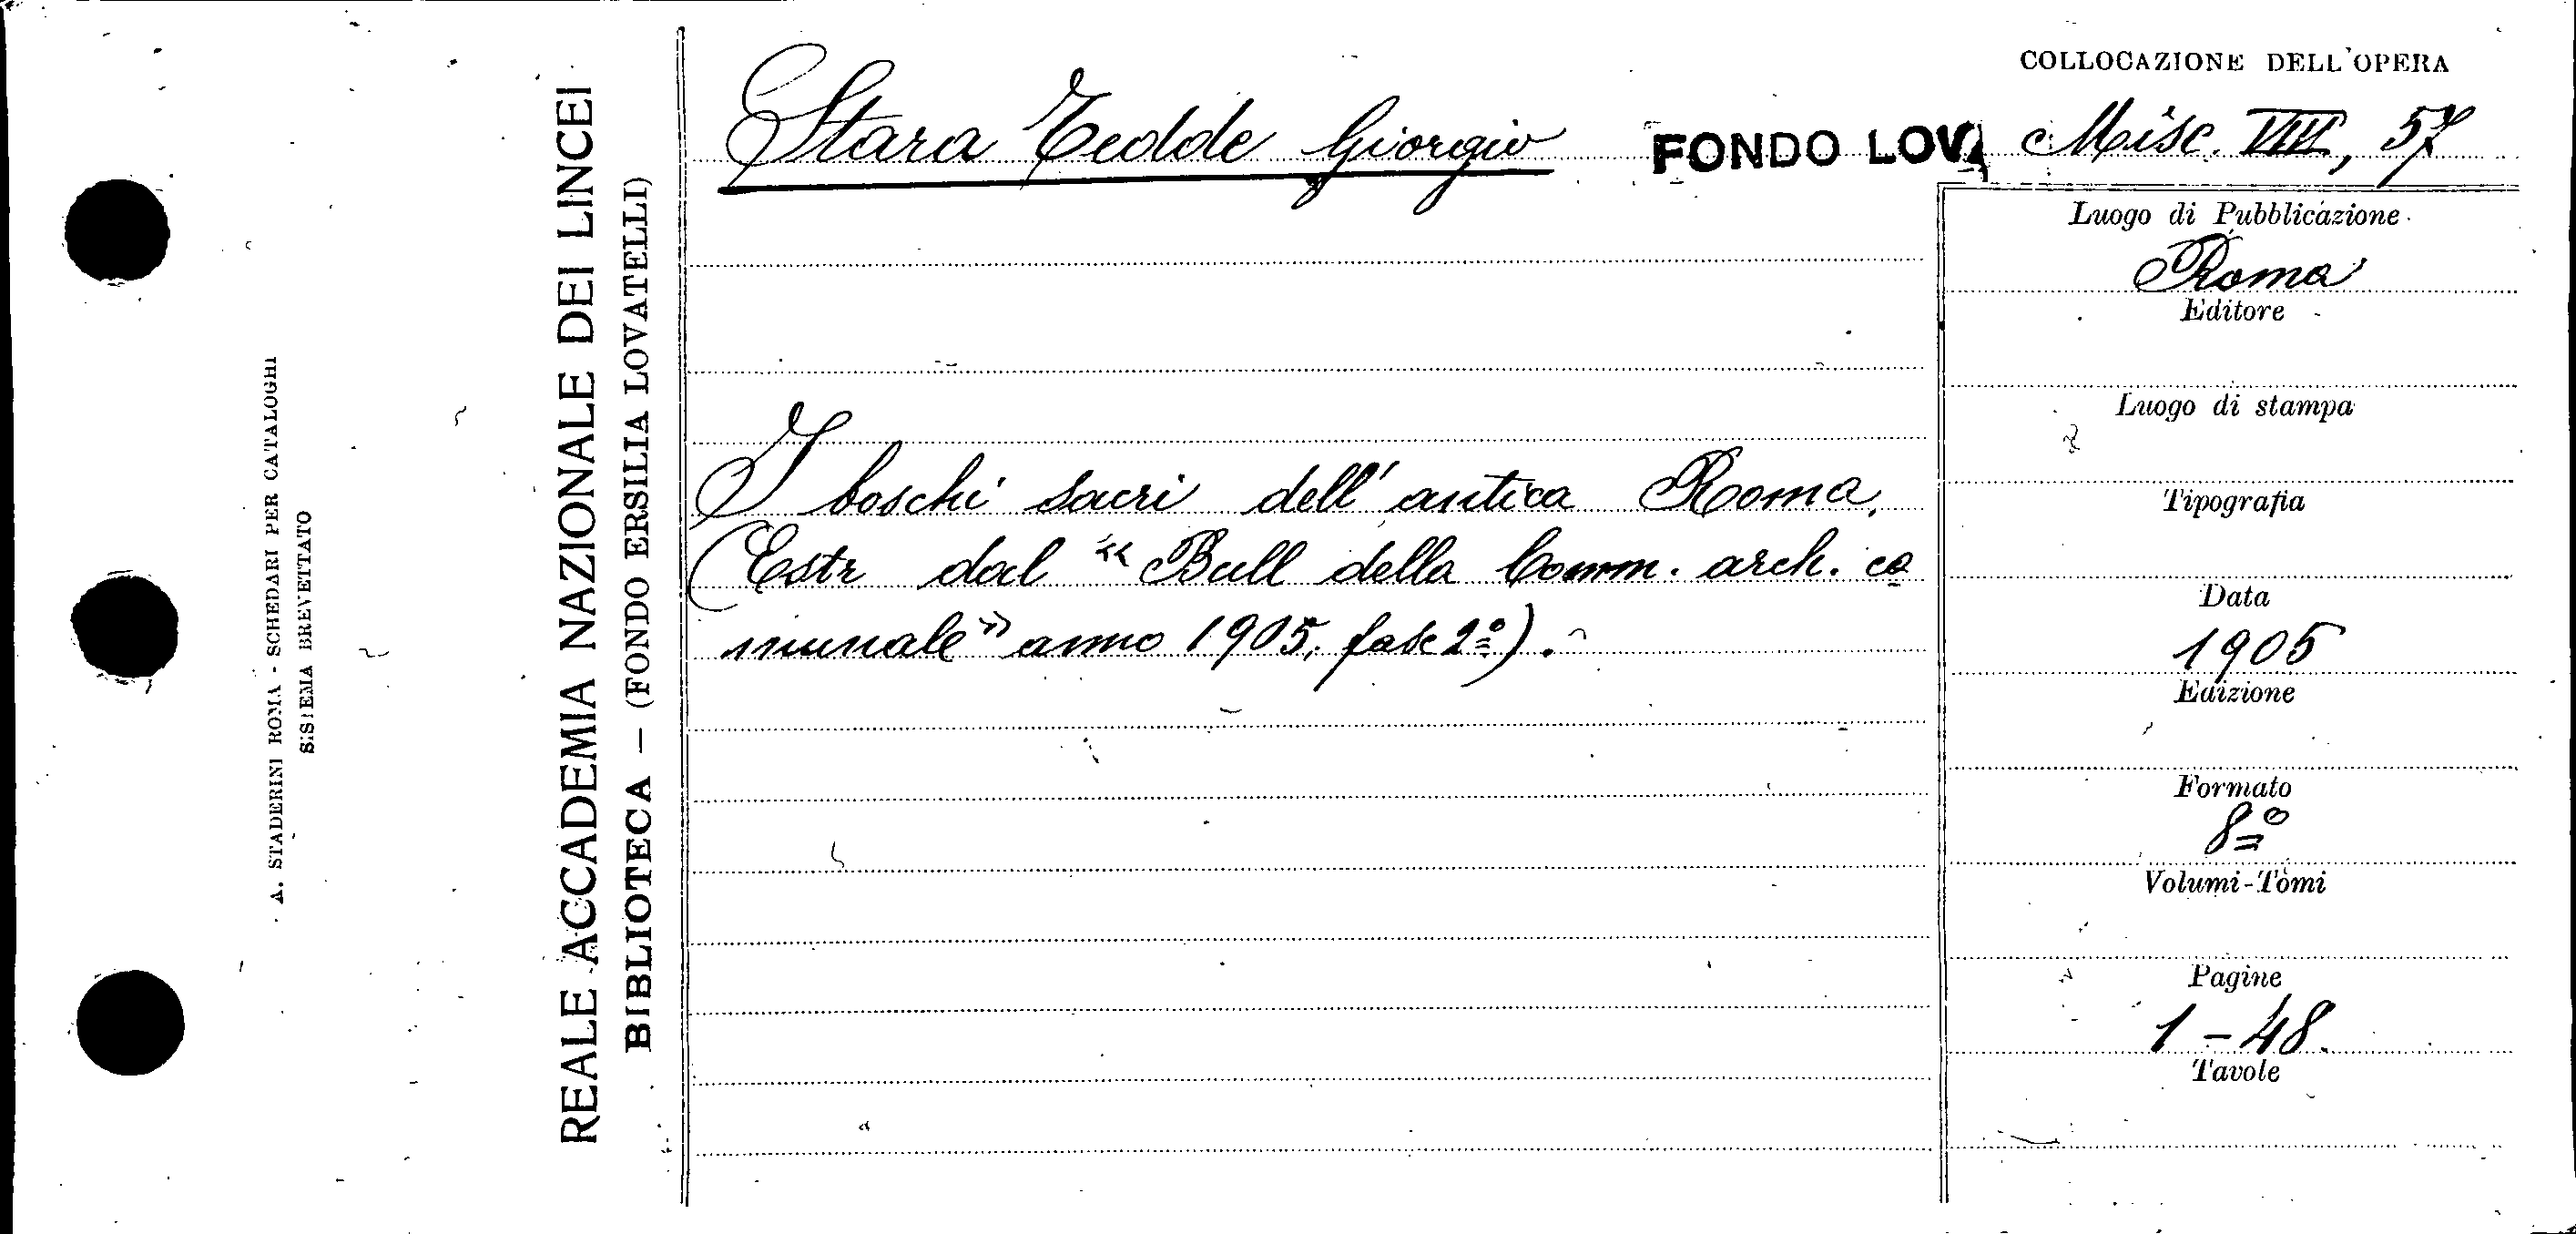 A. STADERINI ROMA - SCHEDARI PER CATALOGHI
SISTEMA BREVETTATO
REALE ACCADEMIA NAZIONALE DEI LINCEI
BIBLIOTECA — (FONDO ERSILIA LOVATELLI)
Stara Tedde Giorgio
FONDO LOVA
COLLOCAZIONE DELL'OPERA
Misc. VIII, 57
I boschi sacri dell'antica Roma.
(Estr dal « Bull della Comm. arch. co
munale » anno 1905, fasc 2º).
Luogo di Pubblicazione
Roma
Editore
Luogo di stampa
Tipografia
Data
1905
Edizione
Formato
8º
Volumi-Tomi
Pagine
1-48.
Tavole